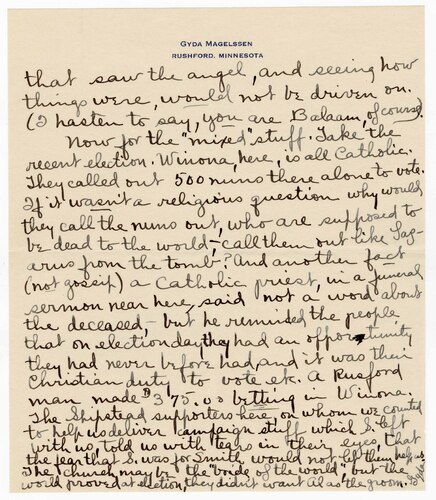 GYDA MAGELSSEN
RUSHFORD, MINNESOTA
that saw the angel, and seeing how
things were, would not be driven on.
(I hasten to say, you are Balaam, of course).
Now for the "mixed" stuff. Take the
recent election. Winona, here, is all Catholic.
They called out 500 nuns there alone to vote.
If it wasn't a religious question why would
they call the nuns out, who are supposed to
be dead to the world,—call them out like Laz-
arus from the tomb? And another fact
(not gossip) a Catholic priest, in a funeral
sermon near here, said not a word about
the deceased,—but he reminded the people
that on election day they had an opportunity
they had never before had, and it was their
Christian duty to vote etc. A Rusford
man made $375.00 betting in Winona.
The Shipstead supporters here, on whom we counted
to help us deliver campaign stuff which S. left
with us, told us with tears in their eyes, that
the fear that S. was for Smith, would not let them help us.
The Church may be the "bride of the world" but the
world proved at election, they didn't want Al as the groom.